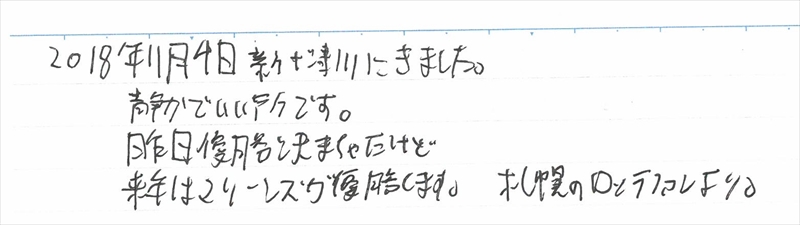 2018年11月4日 新十津川にきました。
静かでいい所です。
昨日優勝決まちゃたけど
来年はマリーンズが優勝します。 札幌のロッテファンより。